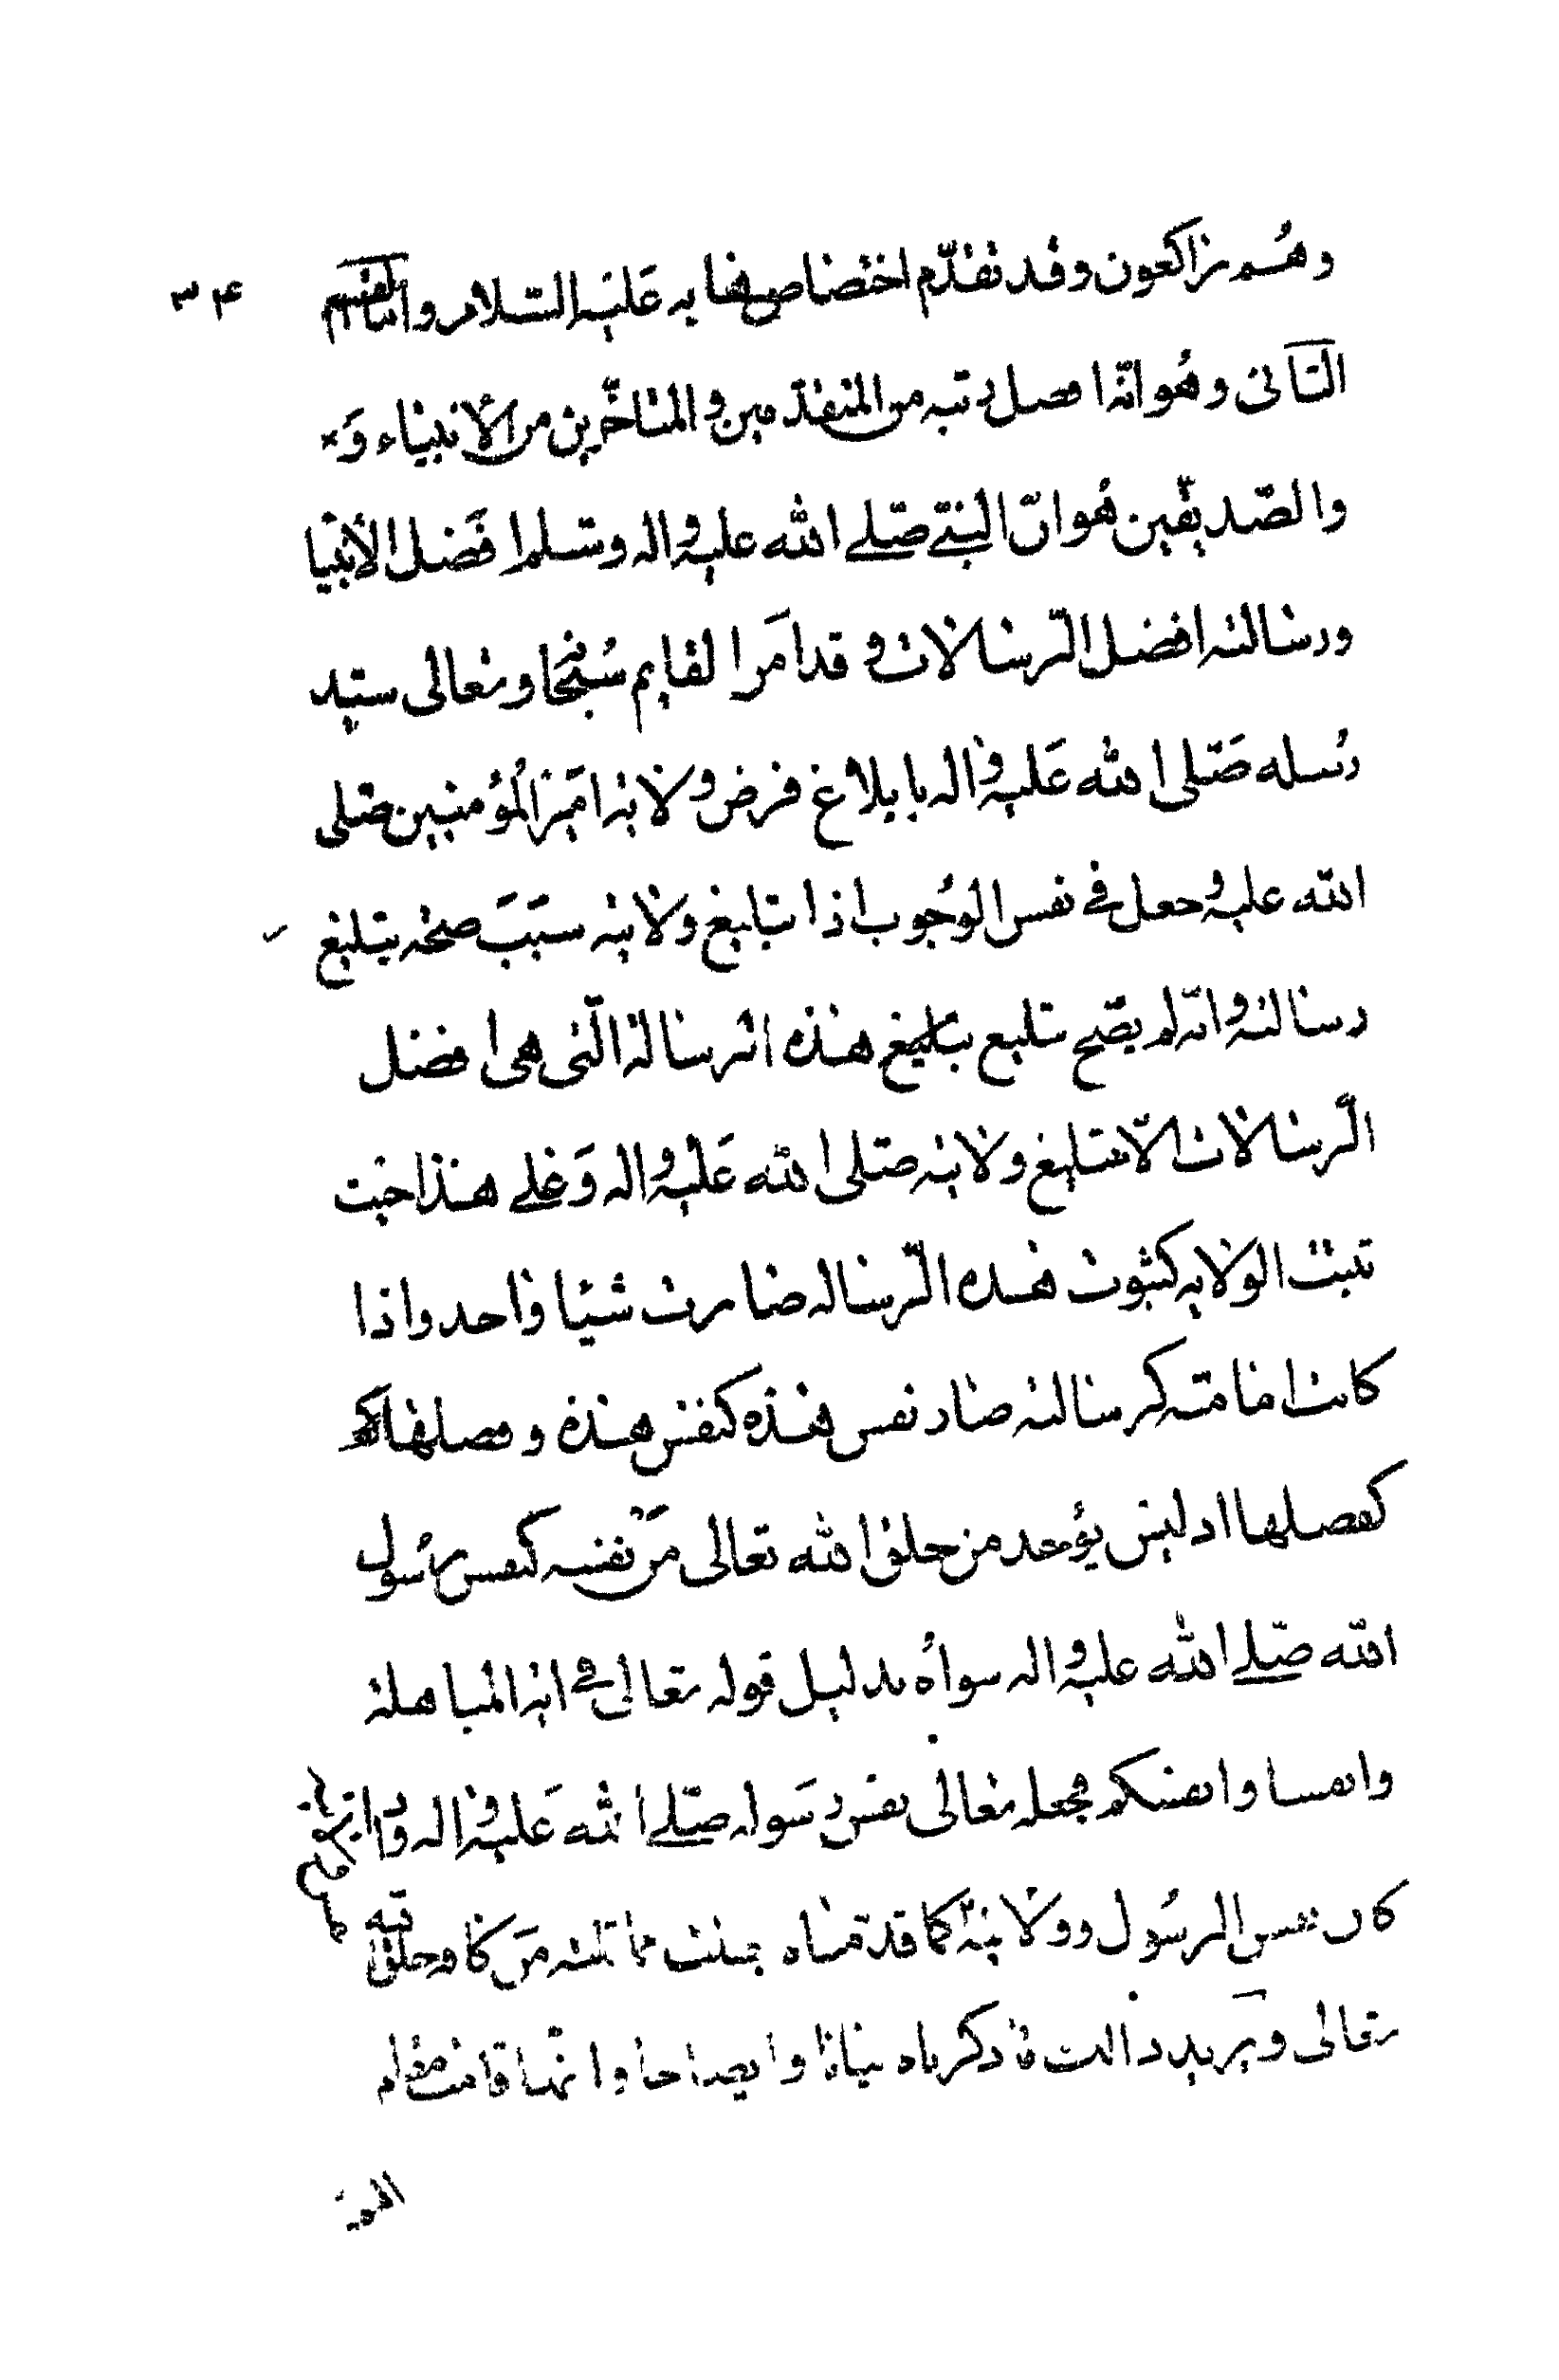 ۳۴
وهم راكعون وقد تقدّم اختصاصها به عَليه السّلام وامّا القسم
الثانى وهُو انّه افضل رتبه من المتقدّمين والمتاخّرين من الأنبياء وَ
والصّديقين هُو انّ النبيّ صلّے الله عليه واله وسلم افضل الأنبيا
ورسالته افضل الرّسالات وقد امَر القديم سُبحانه وتعالى سيّد
رُسله صَلّى الله عَليه واله بابلاغ فرض ولاية امير المُؤمنين صلّى
الله عليه وجعل في نفس الوجُوب اذا تبليغ ولايته سَبَبَ صحّة تبليغ
رسالته وانّه لم يصّح تبليغ تبليغ هذه الرسالة الّتى هى افضل
الرّسالات الّا بتبليغ ولايته صلّى الله عَليه واله وَعلے هذا حيث
تثبت الولايه كثبوت هذه الرّساله صارت شيئا واحد واذا
كانت امامته كرسالته صار نفس هذه كنفس هذه وفضلها
كفضلها اذ ليس يُوجد من خلق الله تعالى مَن نفسه كنفس رسُول
الله صلّے الله عليه واله سواه بدليل قوله تعالى في اية المباهلة
وانفسنا وانفسكم فجعله تعالى نفس رسَوله صلّے الله عَليه واله واذا
كان نفس الرسُول وولايته كما قدّمناه بمثلت مماثلته مَن كافة خلق
تعالى ويريد ذالك ما ذكرناه بيانا وايضاحا وانّها قامت مقام